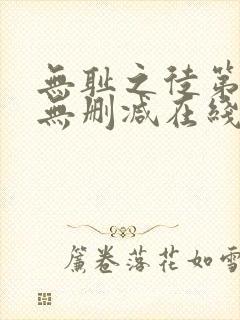 無耻之徒第
無删减在綫
簾卷落花如雪